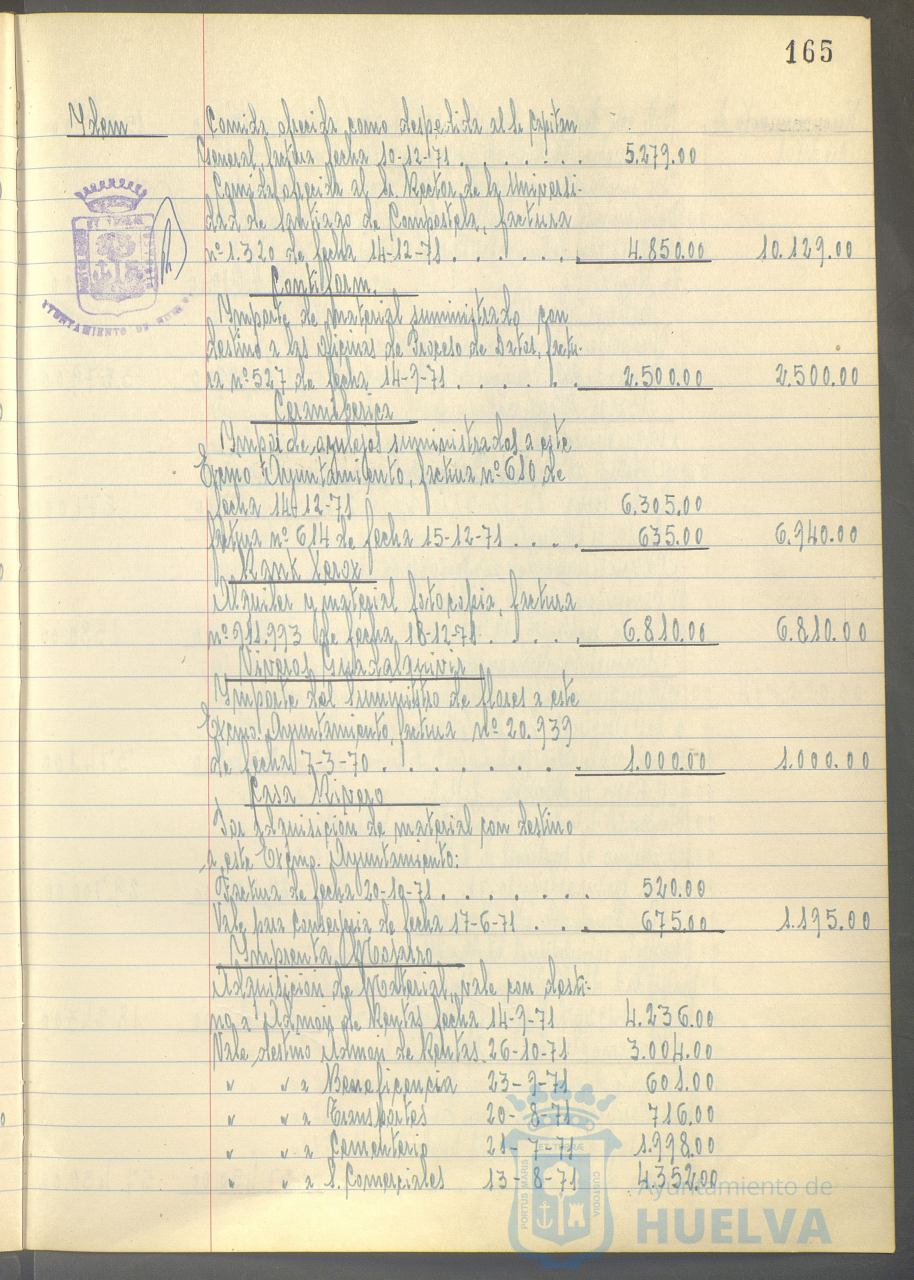 165
Ydem Comida ofrecida como despedida al Sr. Capitan
General, factura fecha 10-12-71 . . . . . . . 5.279.00
Comida ofrecida al Sr. Rector de la Universi-
dad de Santiago de Compostela, factura
nº 1.320 de fecha 14-12-71 . . . . . . 4.850.00 10.129.00
Contiform.
Ymporte de material suministrado con
destino a las oficinas de Proceso de Datos, factu-
ra nº 527 de fecha 14-9-71 . . . . . . 2.500.00 2.500.00
Ceramiberica
Ympor de azulejos suministrados a este
Excmo Ayuntamiento, factura nº 610 de
fecha 14-12-71 6.305,00
factura nº 614 de fecha 15-12-71 . . . . 635.00 6.940.00
Rank Xerox
Alquiler y material fotocopia, factura
nº 911.993 de fecha 18-12-71 . . . . 6.810.00 6.810.00
Viveros Guadalquivir
Ymporte del suministro de flores a este
Excmo. Ayuntamiento, factura nº 20.939
de fecha 7-3-70 . . . . . . . . 1.000.00 1.000.00
Casa Rivero
Por adquisición de material con destino
a este Excmo. Ayuntamiento:
Factura de fecha 20-10-71 . . . . . . . 520.00
Vale para Conserjeria de fecha 17-6-71 . . . 675.00 1.195.00
Ymprenta Mojarro
Adquisición de Material, vale con desti-
no a Admon de Rentas fecha 14-9-71 4.236.00
Vale destino Admon de Rentas 26-10-71 3.004.00
" " a Beneficencia 23-9-71 601.00
" " a Transportes 20-8-71 716.00
" " a Cementerio 21-7-71 1.998.00
" " a S. Comerciales 13-8-71 4.352.00
AYUNTAMIENTO DE HUELVA
PORTUS MARIS ET TERRAE CUSTODIA
Ayuntamiento de
HUELVA